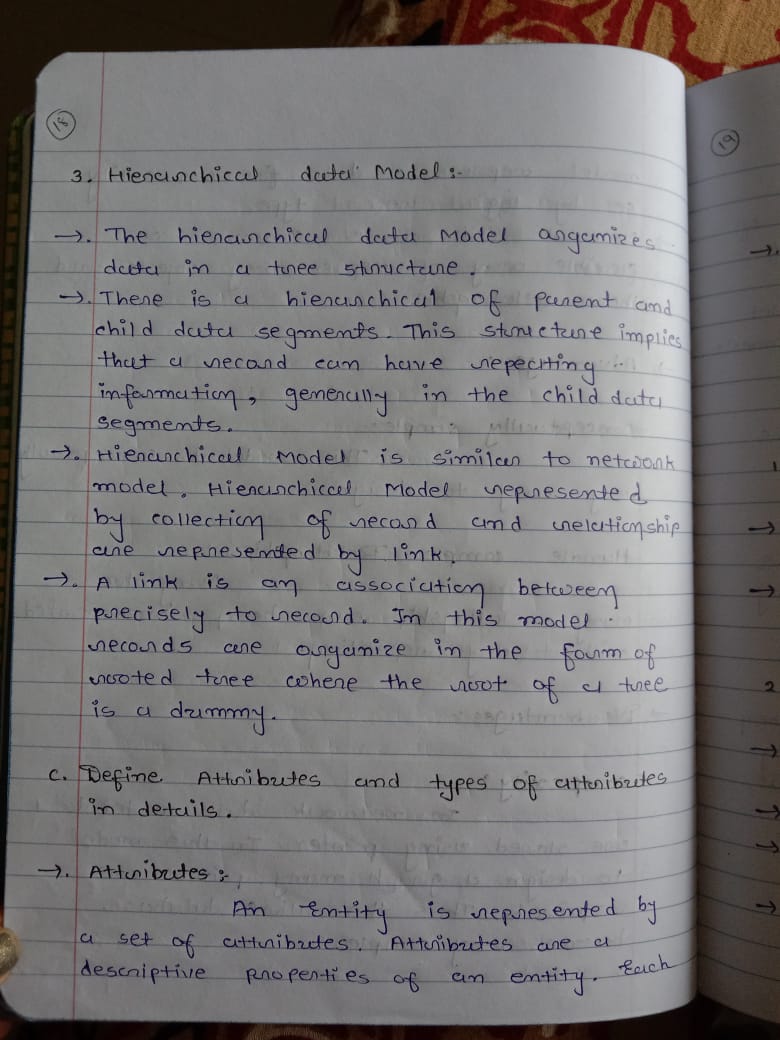 18
3. Hierarchical data Model :-
→. The hierarchical data Model organizes
data in a tree structure.
→. There is a hierarchical of parent and
child data segments. This structure implies
that a record can have repeating
information, generally in the child data
segments.
→. Hierarchical Model is similar to network
model. Hierarchical Model represented
by collection of record and relationship
are represented by link.
→. A link is an association between
precisely to record. In this model
records are organize in the form of
rooted tree where the root of a tree
is a dummy.
c. Define Attributes and types of attributes
in details.
→. Attributes :-
An Entity is represented by
a set of attributes. Attributes are a
descriptive properties of an entity. Each
19
→.
1
→
→
2
→
→
→
→